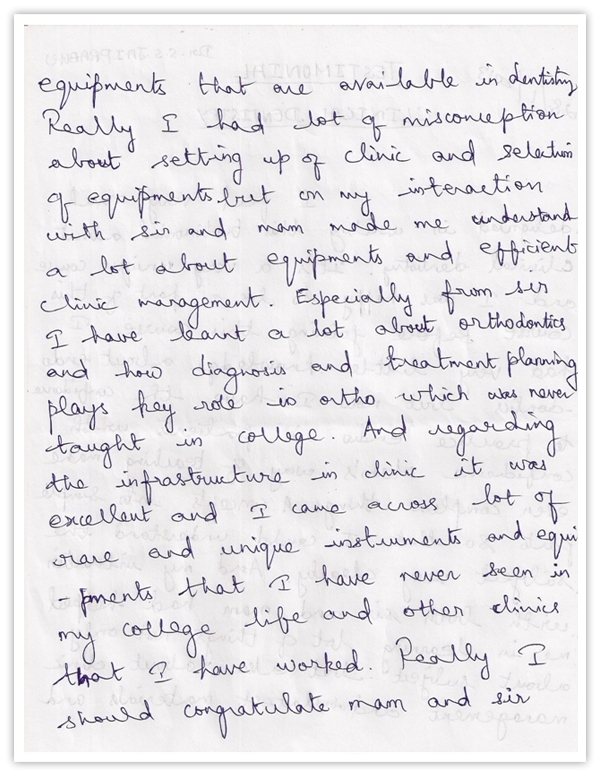 equipments that are available in dentistry
Really I had lot of misconception
about setting up of clinic and selection
of equipments but on my interaction
with sir and mam made me understand
a lot about equipments and efficient
clinic management. Especially from sir
I have learnt a lot about orthodontics
and how diagnosis and treatment planning
plays key role in ortho which was never
taught in college. And regarding
the infrastructure in clinic it was
excellent and I came across lot of
rare and unique instruments and equi
- pments that I have never seen in
my college life and other clinics
that I have worked. Really I
should congratulate mam and sir